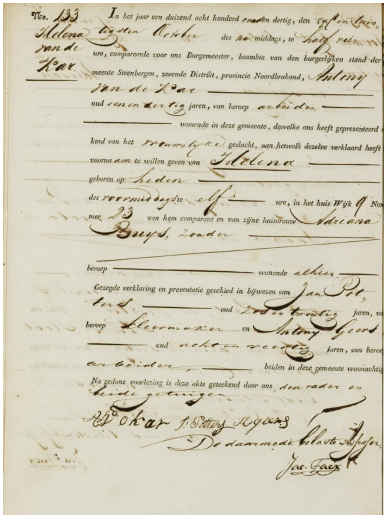 No. 133
Helena
van de
Kar
In het jaar een duizend acht honderd een en dertig, den
tigsten October des na middags, te half vier
ure, compareerde voor ons Burgemeester, beambte van den burgerlijken stand der
meente Steenbergen, zevende Distrikt, provincie Noordbraband, Antony
van de Kar
oud een en dertig jaren, van beroep arbeider
wonende in deze gemeente, dewelke ons heeft gepresenteerd e
kind van het vrouwelyke geslacht, aan hetwelk dezelve verklaard heeft
voornaam te willen geven van Helena
geboren op heden
des voormiddags te elf ure, in het huis Wijk 9 No
mer 23 van hem comparant en van zijne huisvrouw Adriana
Buys, zonder
beroep wonende alhier
Gezegde verklaring en presentatie geschied in bijwezen van Jan Pot
ters oud twintig jaren, va
beroep kleermaker en Antony Geers
oud acht en veertig jaren, van beroe
arbeider, beiden in deze gemeente woonachtig
Na gedane voorlezing is deze akte geteekend door ons, den vader en
beide getuigen
De daarmede belaste Assessor,
Jac. Faex